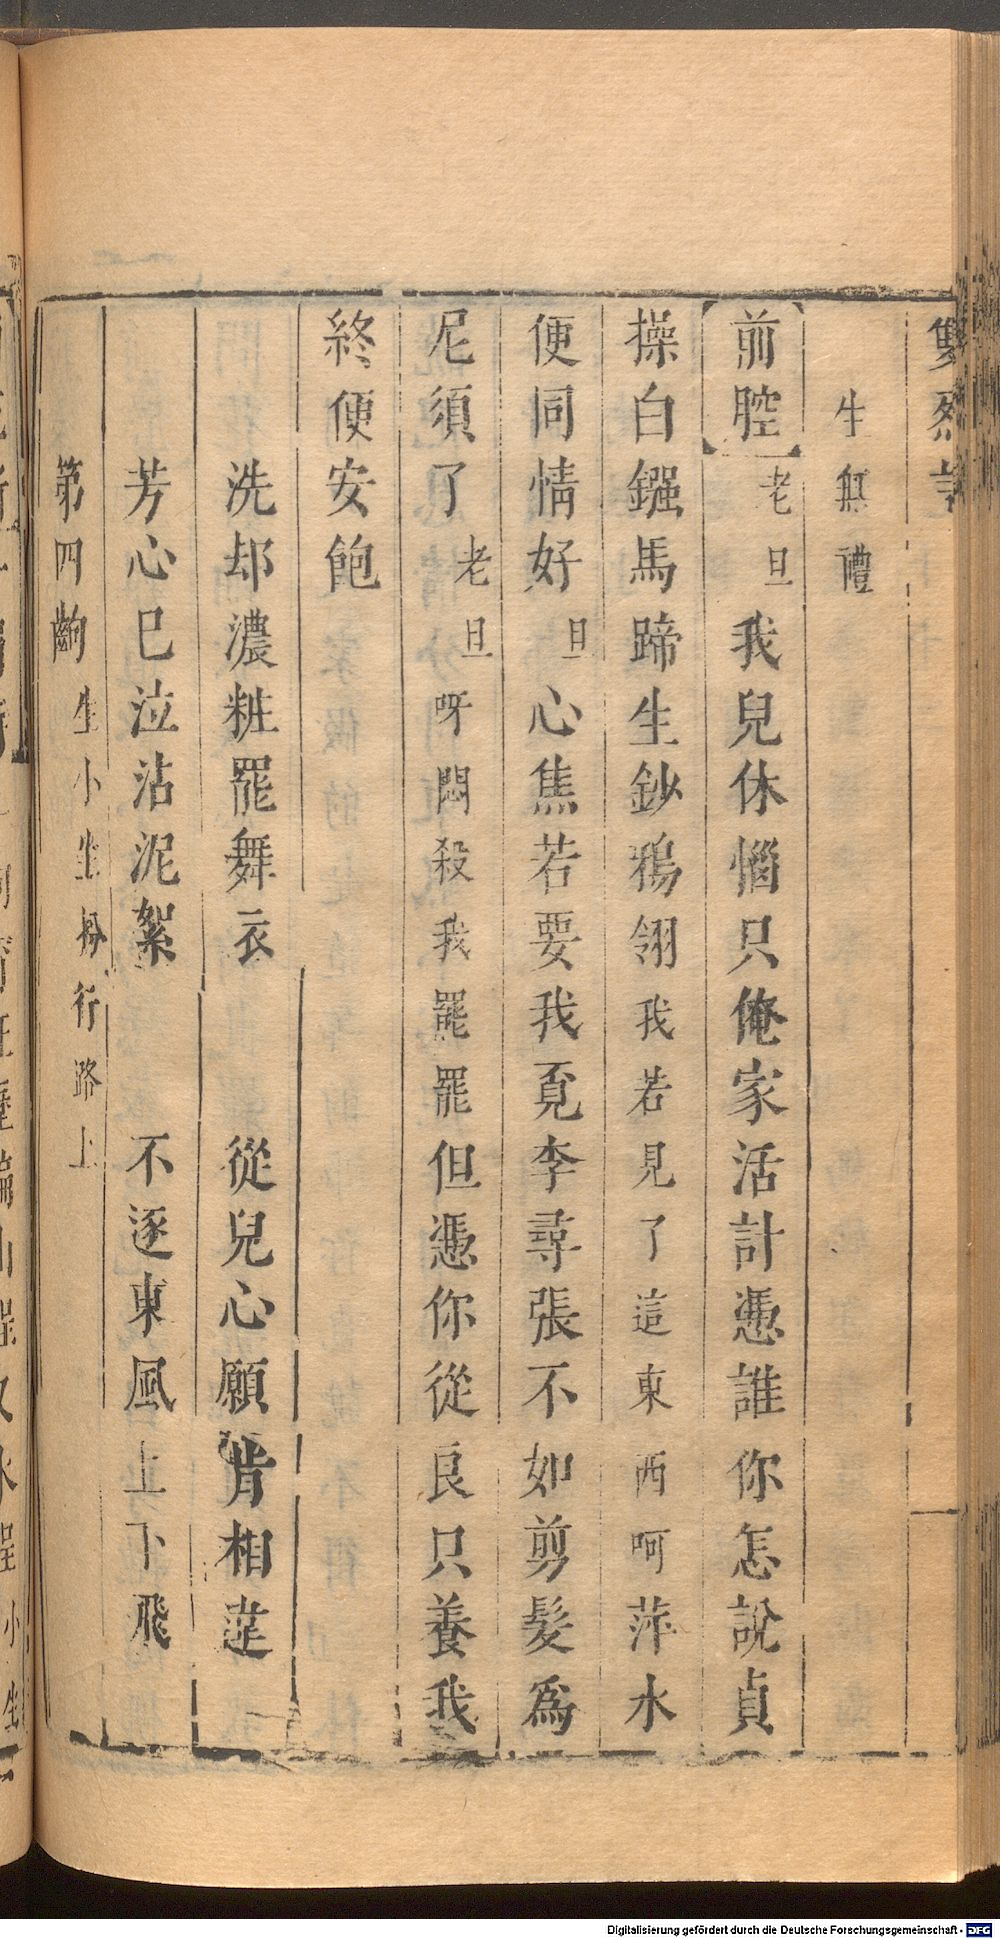 雙烈記
生無禮
前腔老旦我兒休惱只俺家活計憑誰你怎說貞
操白鏹馬蹄生鈔鴉翎我若見了這東西呵萍水
便同情好旦心焦若要我覓李尋張不如剪髮爲
尼須了老旦呀悶殺我罷罷但憑你從良只養我
終便安飽
洗却濃粧罷舞衣 從兒心願肯相違
芳心已泣沾泥絮 不逐東風上下飛
第四齣生小生扮行路上
Digitalisierung gefördert durch die Deutsche Forschungsgemeinschaft - DFG